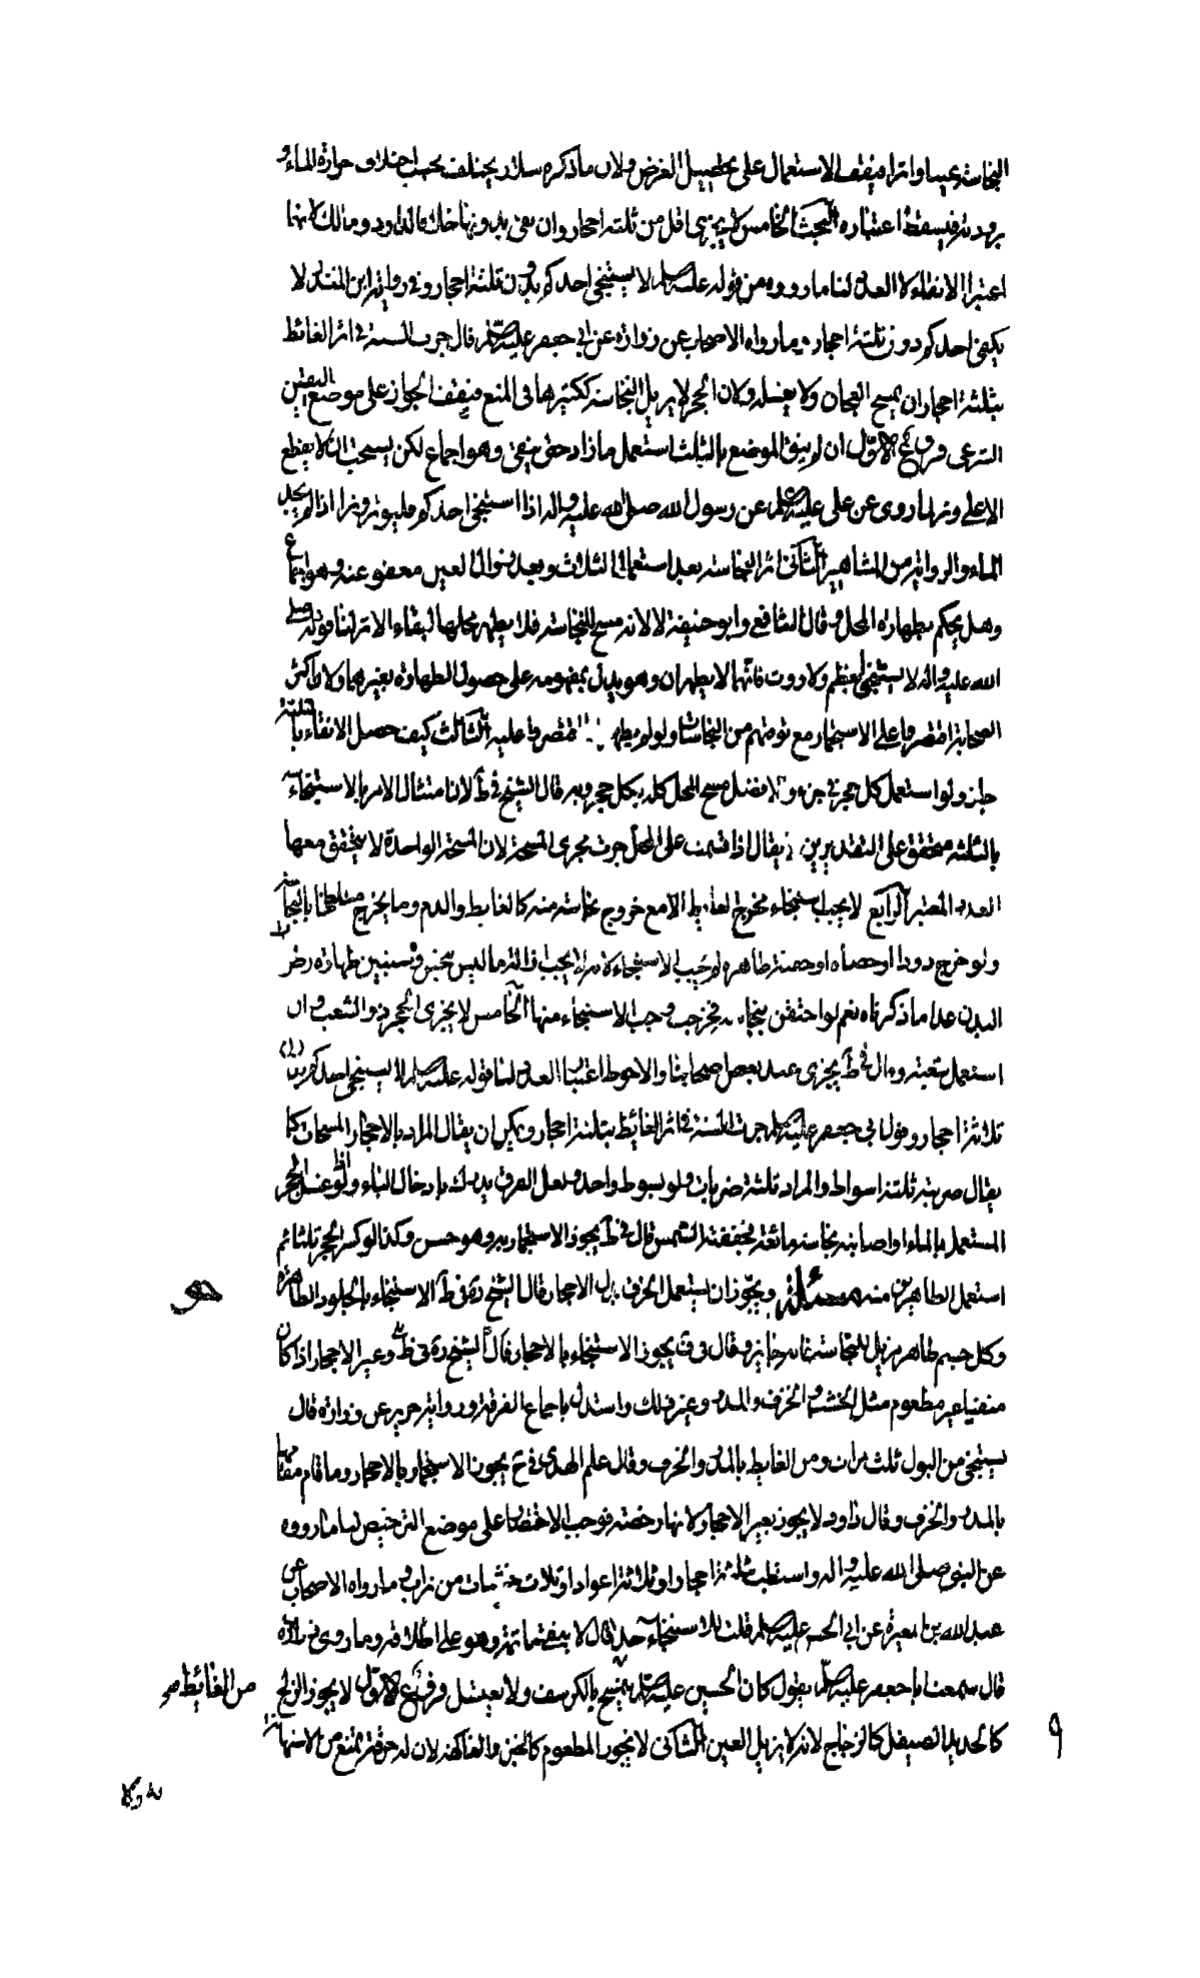 النجاسة عينا واثرا فيقف الاستعمال على تحصيل الغرض ولان ما ذكره سلار يختلف بحسب اختلاف حرارة الماء و
برودته فيسقط اعتباره البحث الخامس لا يجزي اقل من ثلثه احجار وان نقي بدونها خلافا لداود ومالك لانهما
اعتبرا الانقاء لا العدد لنا ما رووه من قوله عليه السلم لا يستنجي احدكم بدون ثلثة احجار وفي رواية ابن المنذر لا
يكفي احدكم دون ثلثة احجار وما رواه الاصحاب عن زرارة عن ابي جعفر عليه السلم قال جرت السنة في اثر الغائط
بثلثة احجار ان يمسح العجان ولا يغسله ولان الحجر لا يزيل النجاسة ككثيرها في المنع فيقف الجواز على موضع اليقين
الشرعي فروع الاول ان لم ينق الموضع بالثلث استعمل ما زاد حتى ينقى وهو اجماع لكن يستحب ان لا يقطع
الا على وتر لما روى عن علي عليه السلم عن رسول الله صلى الله عليه واله اذا استنجى احدكم فليوتر وترا اذا لم يجد
الماء والرواية من المشاهير الثاني اثر النجاسة بعد استعمال الثلاث وبعد زوال العين معفو عنه وهو اجماع
وهل يحكم بطهارة المحل وقال الشافعي وابو حنيفة لا لانه مسح للنجاسة فلا يطهر محلها لبقاء الاثر لنا قوله صلى
الله عليه واله لا يستنجى بعظم ولا روث فانهما لا يطهران وهو يدل بمفهومه على حصول الطهارة بغيرهما ولان اكثر
الصحابة اقتصروا على الاستجمار مع توقيهم من النجاسات ولو لم يطهر اقتصروا عليه الثالث كيف حصل الانقاء بالثلثة
جاز ولو استعمل كل حجر في جزء والافضل مسح المحل كله بكل حجر وبه قال الشيخ في ط لانا امتثال الامر بالاستنجاء
بالثلثه متحقق على التقديرين لا يقال اذا قسمت على المحل جرت مجرى المسحة لان المسحة الواحدة لا يتحقق معها
العدد المعتبر الرابع لا يجب استنجاء مخرج الغايط الا مع خروج نجاسة منه كالغايط والدم وما يخرج متلطخا بالنجاسة
ولو خرج دودا او حصاه او حقنة طاهرة لم يجب الاستنجاء لانه لا يجب ازالة ما ليس بنجس وتستبين طهارة رطوبة
البدن عدا ما ذكرناه نعم لو احتقن بنجاسة فخرجت وجب الاستنجاء منها الخامس لا يجزى الحجر ذو الشعب وان
استعمل شعبه وقال في ط يجزى عند بعض اصحابنا والاحوط اعتبار العدد لنا قوله عليه السلم لا يستنجي احدكم بدون
ثلاثة احجار وقول ابي جعفر عليه السلم جرت السنة في اثر الغائط بثلثة احجار ويمكن ان يقال المراد بالاحجار المسحات كما
يقال ضربته ثلثة اسواط والمراد ثلثة ضربات ولو بسوط واحد ولعل الفرق يدرك بادخال الباء ولو غسل الحجر
المستعمل بالماء او اصابته نجاسة مائعة فجففته الشمس قال في ط يجوز الاستجمار به وهو حسن وكذا لو كسر الحجر ثلثا ثم
استعمل الطاهر من منه مسئلة ويجوز ان يستعمل الخزف بدل الاحجار قال الشيخ ره في ط الاستنجاء بالجلود الطاهرة
هو
وكل جسم طاهر مزيل للنجاسة فانه جايز وقال في ف يجوز الاستنجاء بالاحجار قال الشيخ ره في ط وغير الاحجار اذا كان
منقيا غير مطعوم مثل الخشب والخزف والمدر وغير ذلك واستدل باجماع الفرقة ورواية حريز عن زرارة قال
يستنجى من البول ثلث مرات ومن الغايط بالمدر والخرق وقال علم الهدى في ح يجوز الاستجمار بالاحجار وما قام مقامها
بالمدر والخرق وقال داود لا يجوز بغير الاحجار لانها رخصة فوجب الاقتصار على موضع الترخيص لنا ما رووه
عن النبي صلى الله عليه واله واستطب بثلثة احجار او ثلاثة اعواد او ثلاث حثيات من تراب وما رواه الاصحاب عن
عبد الله بن المغيرة عن ابي الحسن عليه السلم قلت للاستنجاء حد قال لا ينقي ما ثمة وهو على اطلاقه وما روى زرارة
قال سمعت ابا جعفر عليه السلم يقول كان الحسين عليه السلم يتمسح بالكرسف ولا يغسل فروع الاول لا يجوز الزلج
من الغائط صح
كالحديد الصيقل كالزجاج لانه لا يزيل العين الثاني لا يجوز المطعوم كالخبز والفاكهة لان له حرمة تمنع من الاستهانة
٩